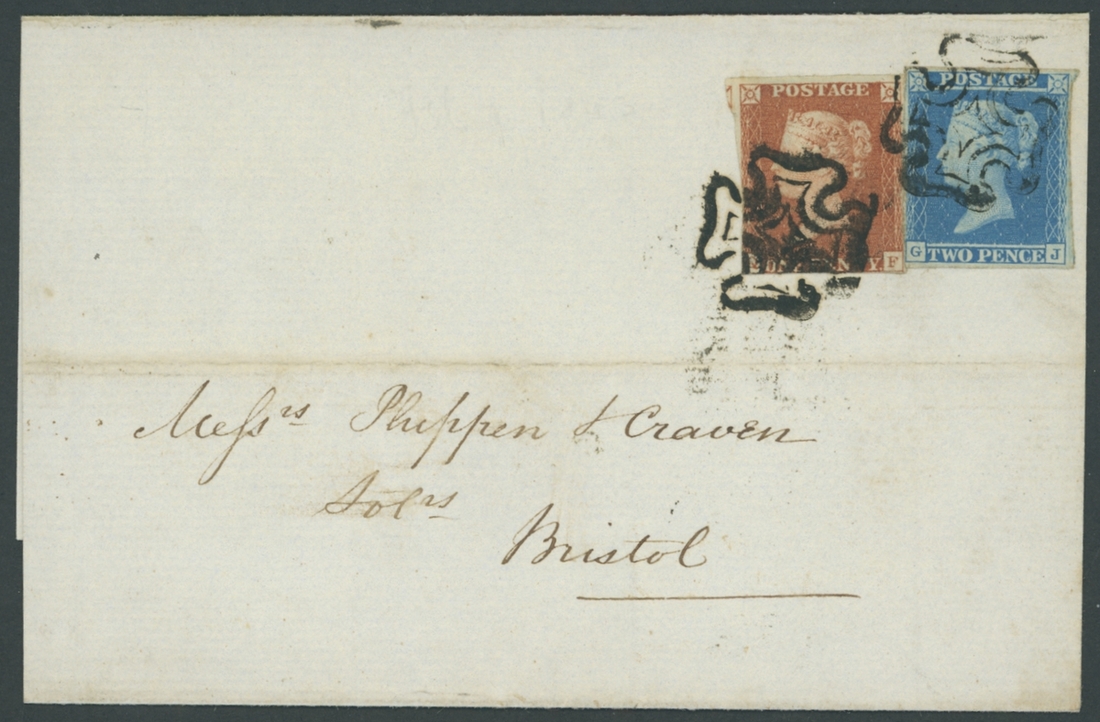 POSTAGE
POSTAGE
F
G TWO PENCE J
Messrs Phippen & Craven
Solrs
Bristol